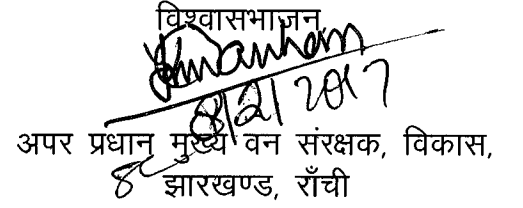 विश्वासभाजन,
8/2/2017
अपर प्रधान मुख्य वन संरक्षक, विकास,
झारखण्ड, राँची